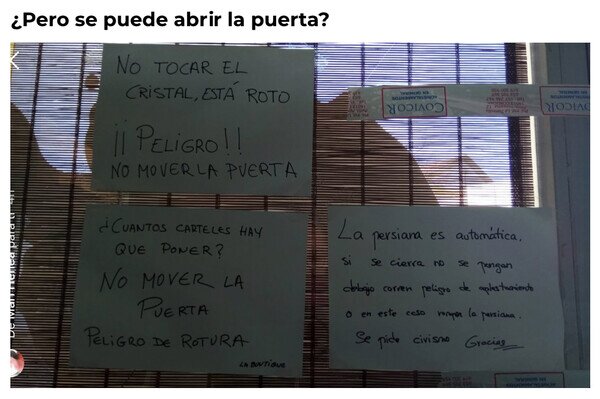 ¿Pero se puede abrir la puerta?
NO TOCAR EL
CRISTAL, ESTÁ ROTO
¡¡PELIGRO!!
NO MOVER LA PUERTA
COVICOR
ACRISTALAMIENTOS
EN GENERAL
COVICOR
¿CUANTOS CARTELES HAY
QUE PONER?
NO MOVER LA
PUERTA
PELIGRO DE ROTURA
LA BOUTIQUE
La persiana es automática,
si se cierra no se pongan
debajo corren peligro de aplastamiento
o en este caso rompen la persiana.
Se pide civismo Gracias